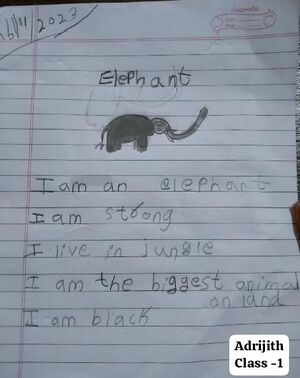 classmate
2023
Elephant
I am an elephant
I am strong
I live in jungle
I am the biggest animal
on land
I am black
Adrijith
Class -1